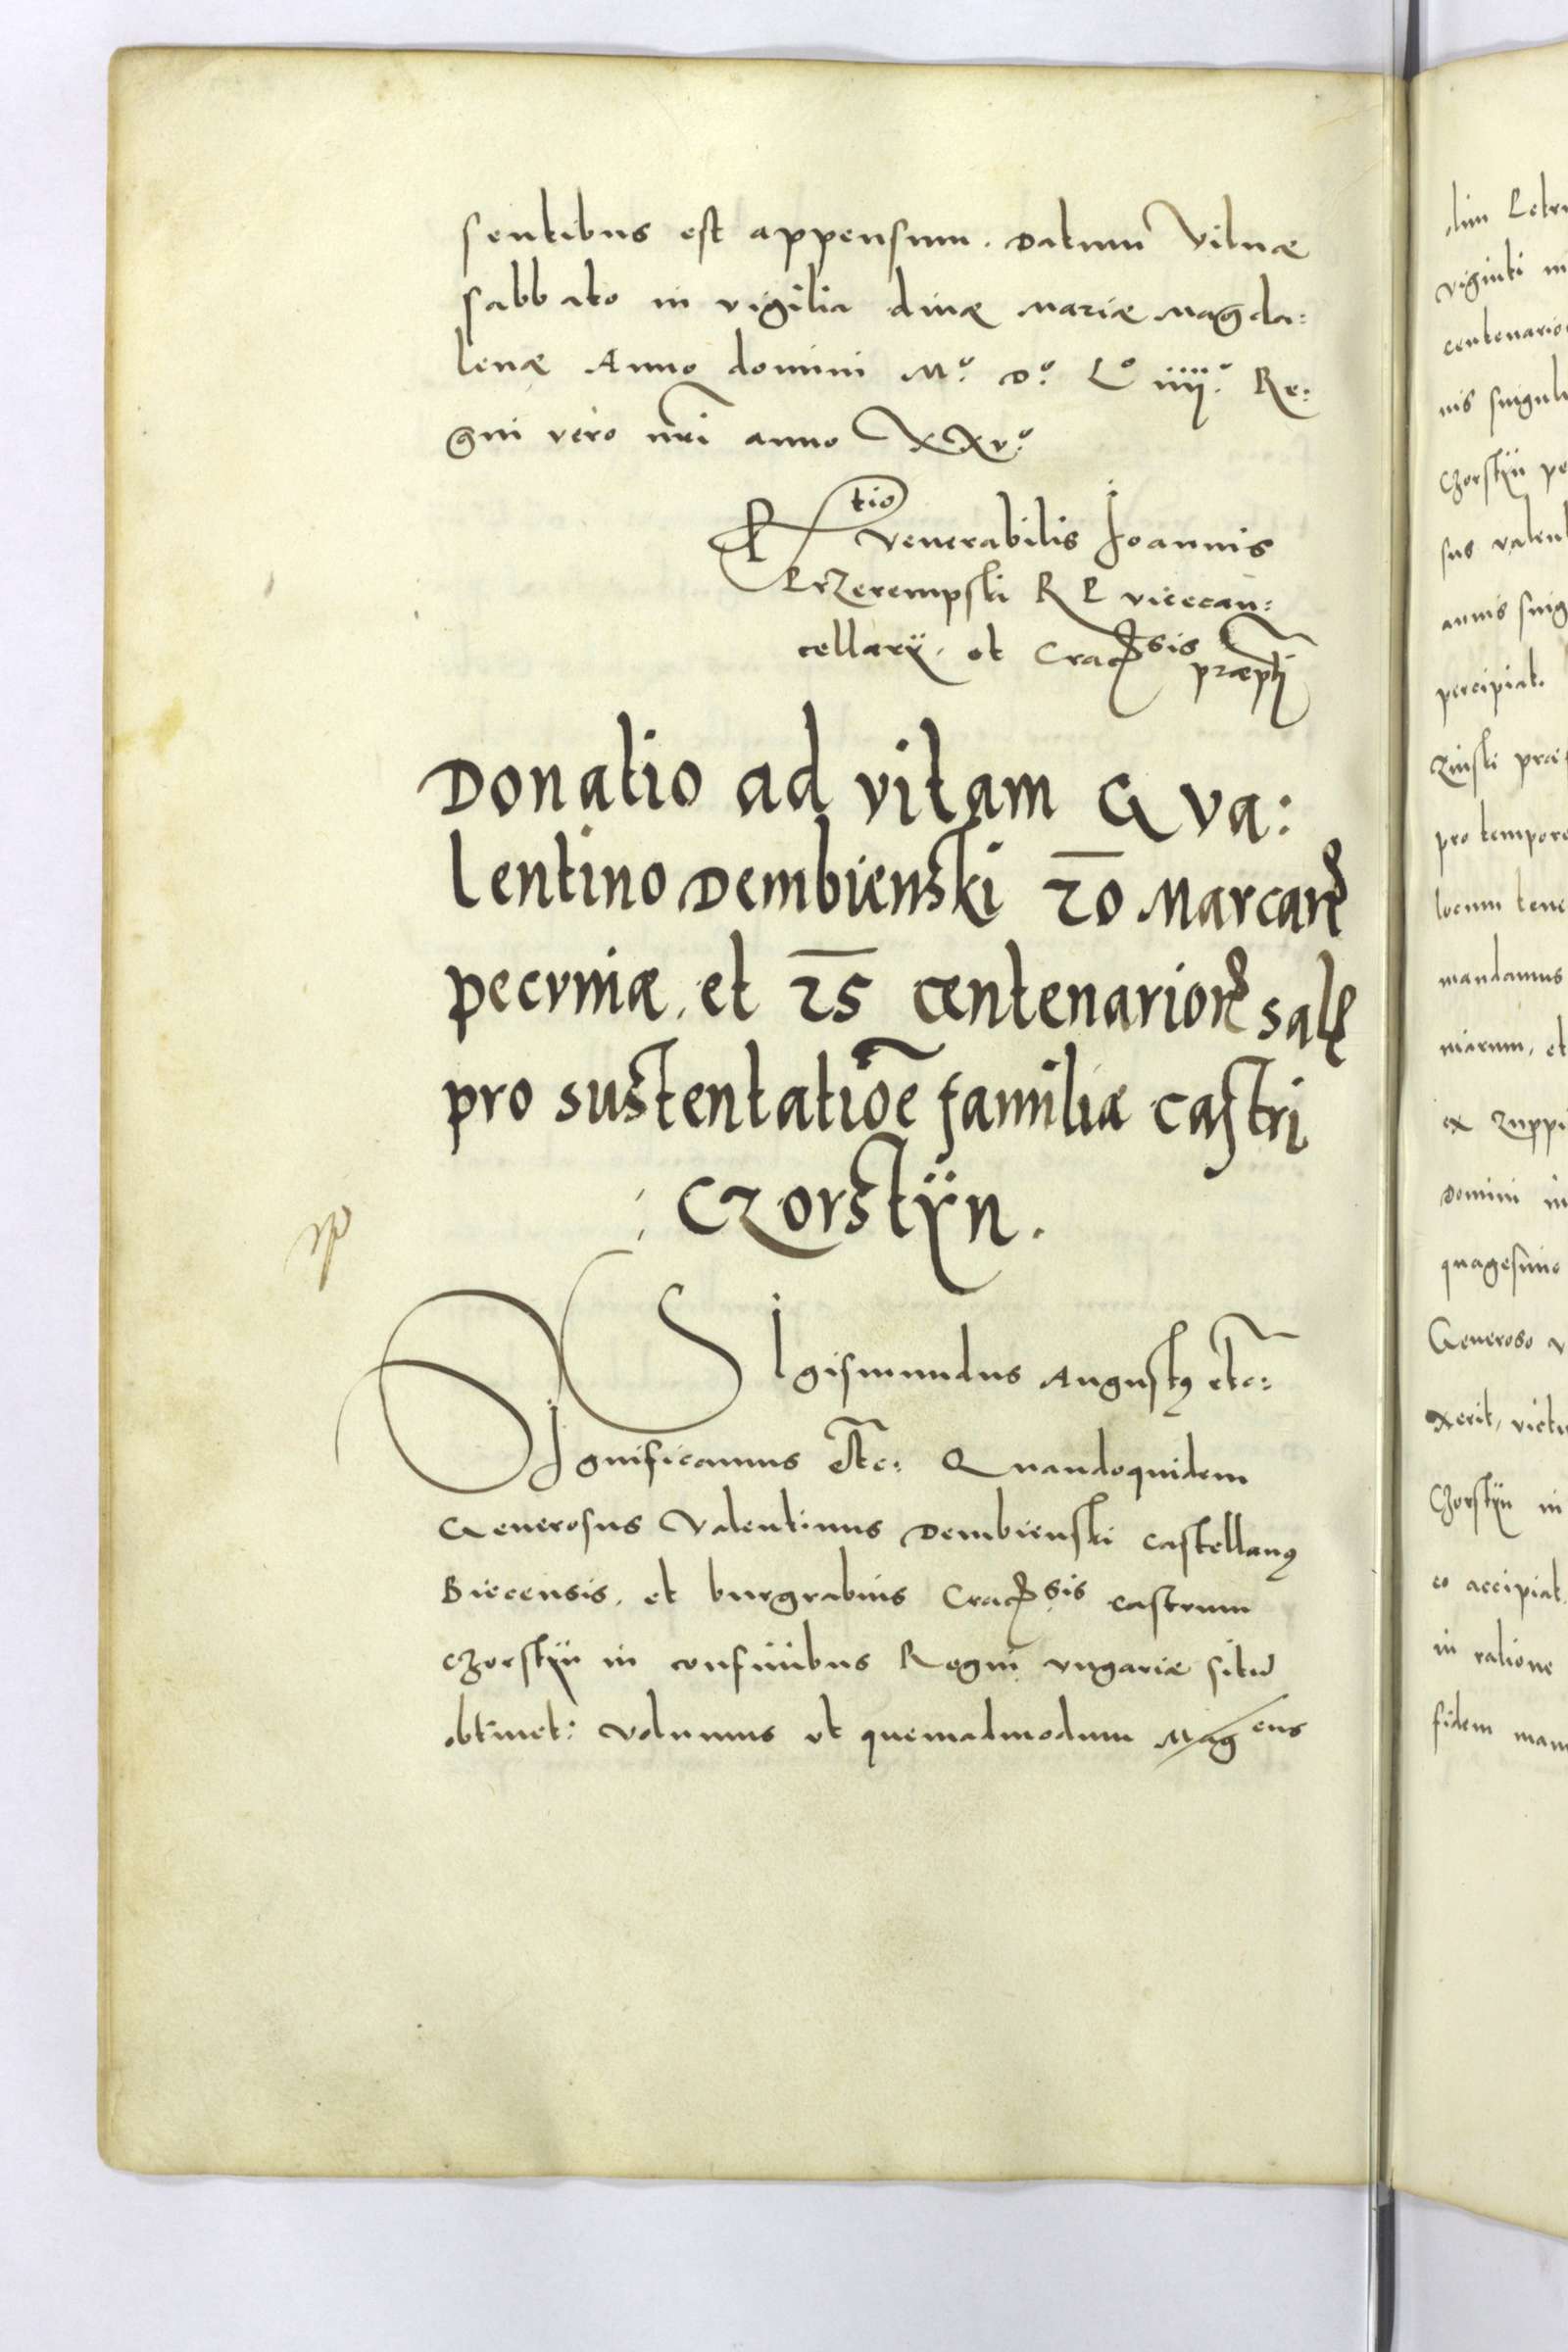 sentibus est appensum. Datum Vilnæ
sabbato in vigilia divæ Mariæ Magda:
lenæ Anno domini M.º D.º Lº iiij.º Re:
gni vero nr̃i anno XXv.º
Rtio Venerabilis Joannis
Przerempski R P vicecan:
cellarij. et Cracō.sis præpti
Donatio ad vitam G Va:
lentino Dembienski 20 Marcarꝝ
pecuniæ. et 25 centenariorꝝ salꝭ
pro sustentatiōe familiæ castri
: Czorstÿn.
SIgismundus Augustꝯ etc:
Significamus etc: Quandoquidem
Generosus Valentinus Dembienski castellanꝯ
Biecensis. et burgrabius Cracō.sis castrum
Czorstÿn in confinibus Regni Ungariæ sitū
obtinet: Volumus ut quemadmodum Mag ens
olim Petru
viginti
centenario
nis singul
Czorstÿn pe
sus Valent
annis sing
percipiat.
pro tempore
locum tene
mandamus
niarum, et
ex Zupp
Domini in
quagesimo
Generoso V
xerit, vict
Czorstÿn in
co accipiat.
in ratione
fidem man